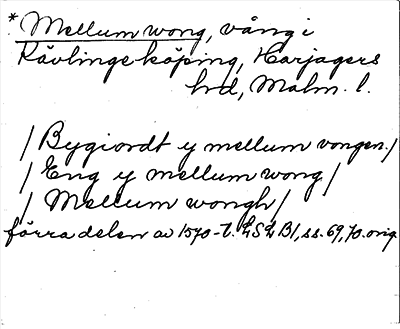 *Mellum wong, vång i
Kävlinge köping, Harjagers
hd, Malm. l.
/Bygiordt y mellum vongen./
/Eng y mellum wong/
/Mellum wongh/
förra delen av 1570-t. LSLB1, ss. 69, 70. orig.